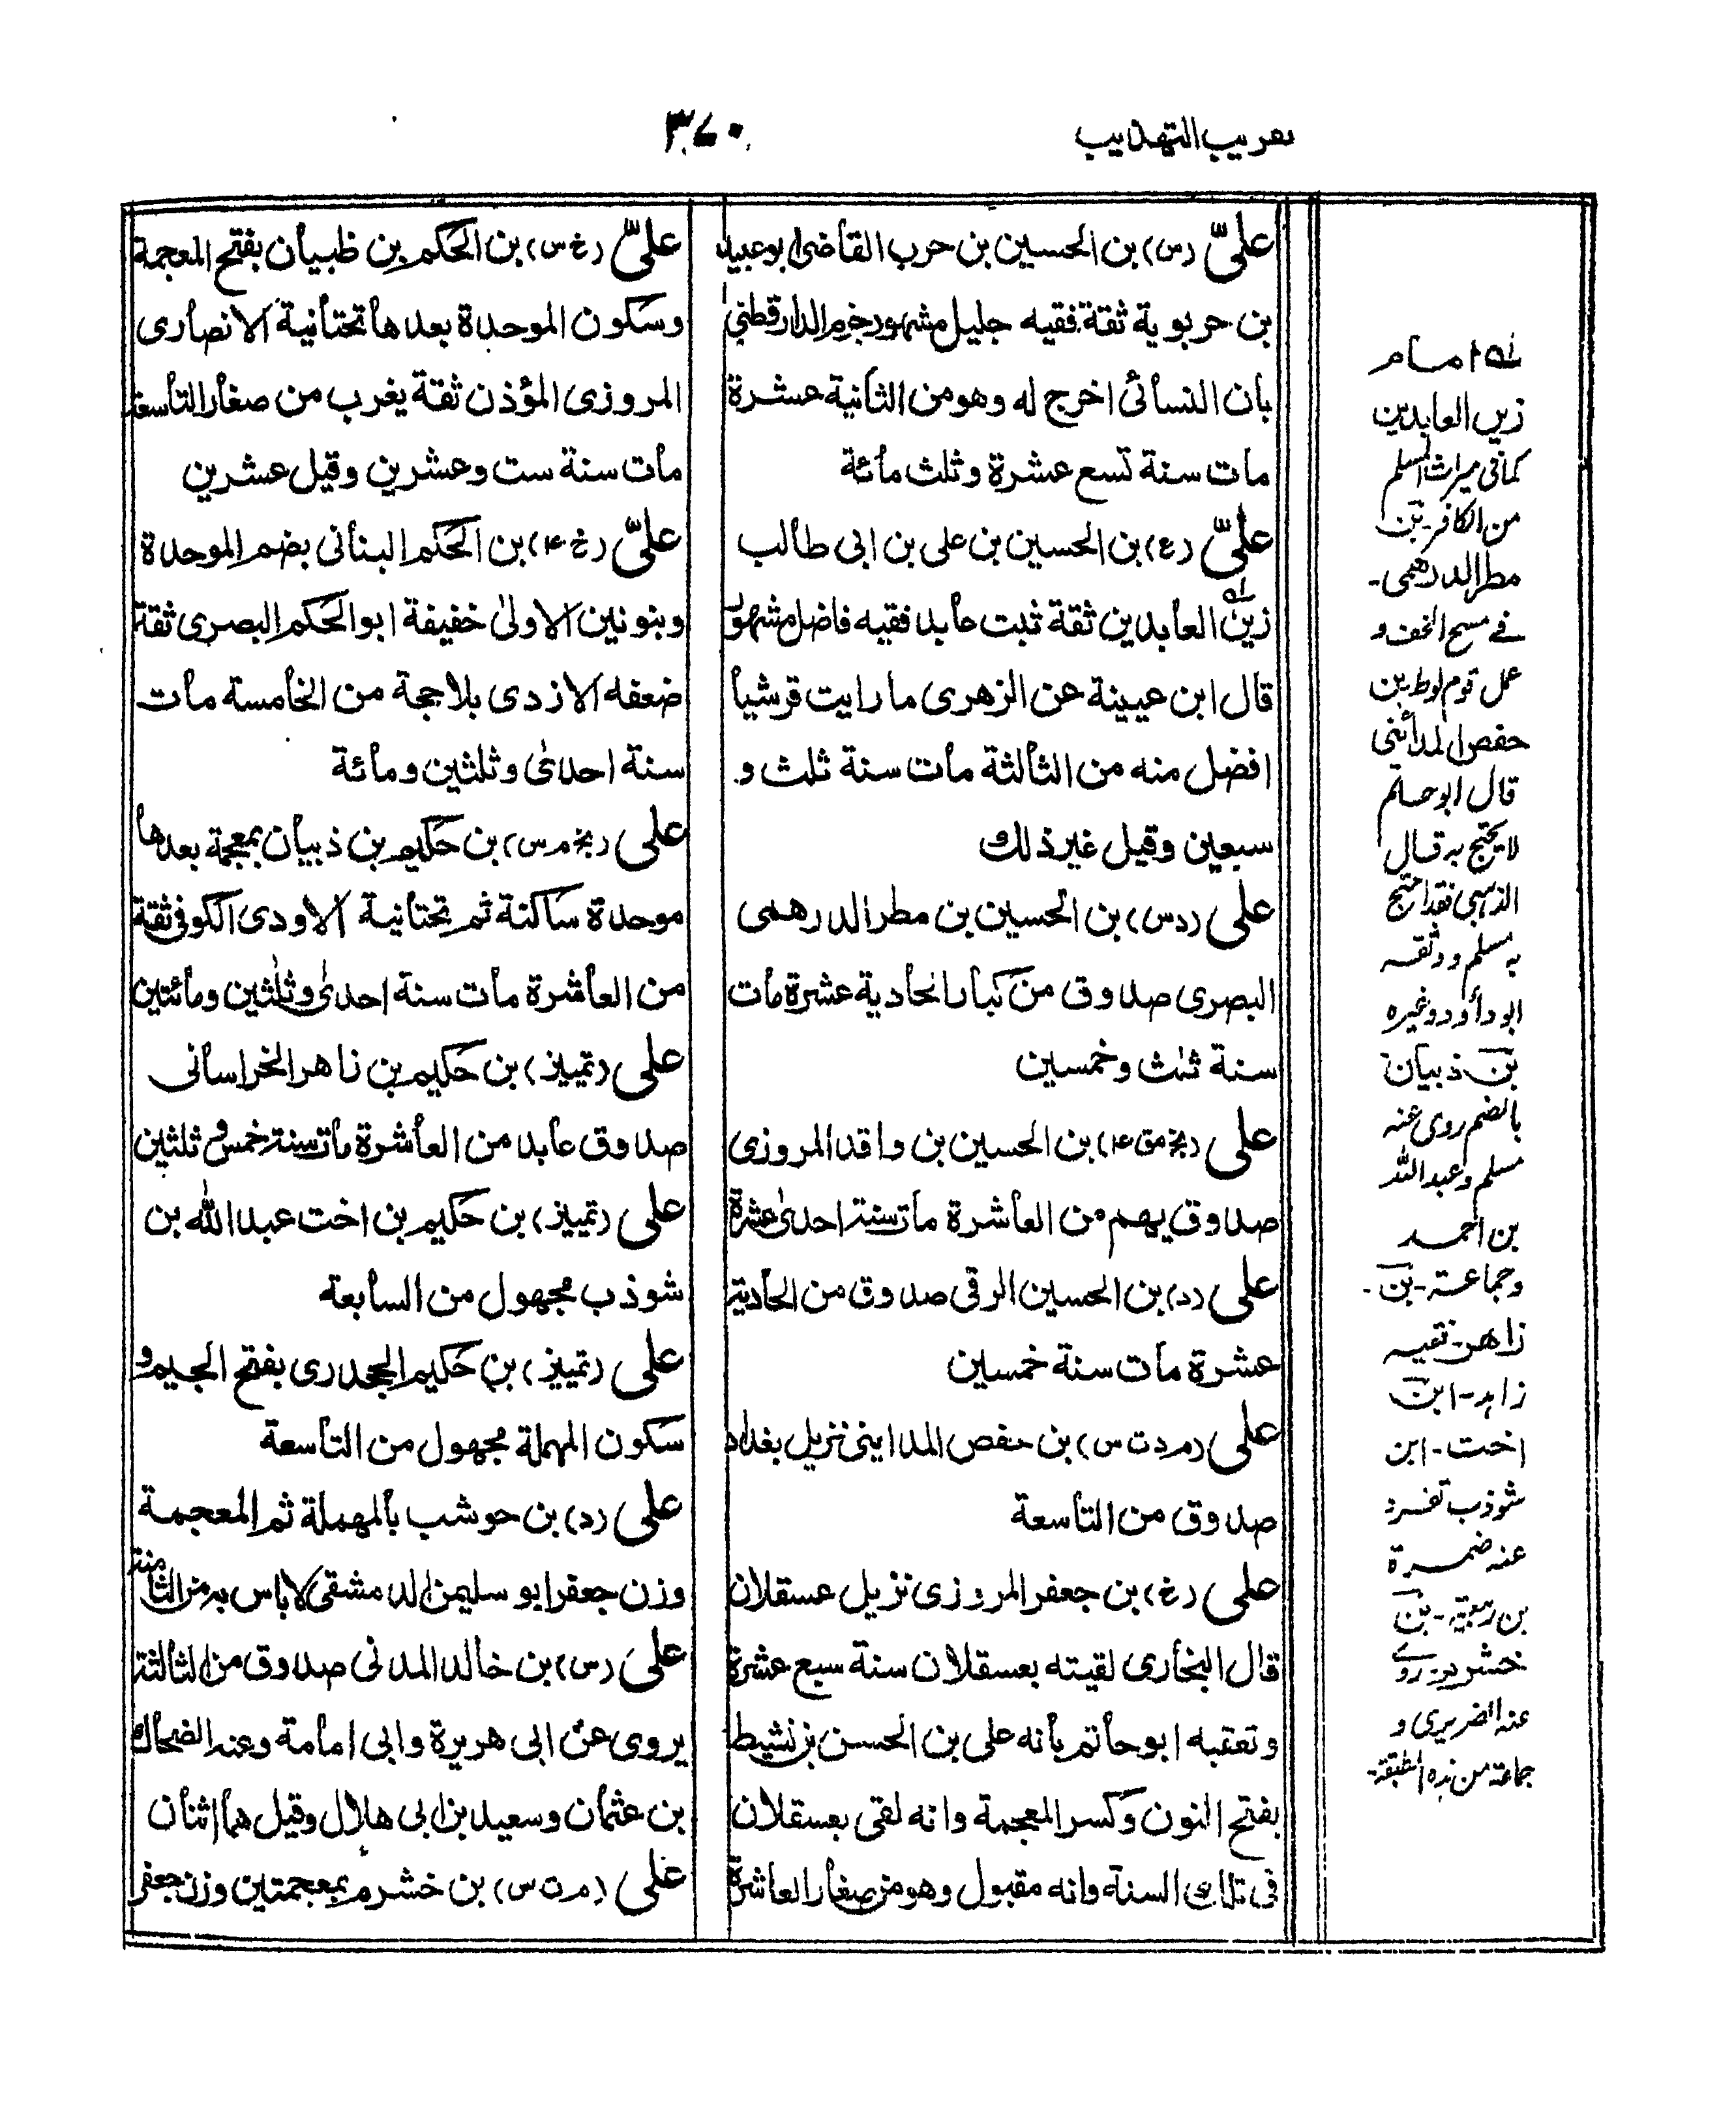 تقريب التهذيب
٣٧٠
علىّ (س) بن الحسين بن حرب القاضى ابو عبيد
بن حربوية ثقة فقيه جليل مشهور جزم الدارقطنى
بان النسائى اخرج له وهو من الثانية عشرة
مات سنة تسع عشرة وثلث مائة
علىّ (ع) بن الحسين بن على بن ابى طالب
زين العابدين ثقة ثبت عابد فقيه فاضل مشهور
قال ابن عيينة عن الزهرى ما رايت قرشيا
افضل منه من الثالثة مات سنة ثلث و
سبعين وقيل غير ذلك
على (دس) بن الحسين بن مطر الدرهمى
البصرى صدوق من كبار الحادية عشرة مات
سنة ثلث وخمسين
على (بخ مق ۴) بن الحسين بن واقد المروزى
صدوق يهم من العاشرة مات سنة احدى عشرة
على (د) بن الحسين الرقى صدوق من الحادية
عشرة مات سنة خمسين
على (م د ت س) بن حفص المداينى نزيل بغداد
صدوق من التاسعة
على (خ) بن جعفر المروزى نزيل عسقلان
قال البخارى لقيته بعسقلان سنة سبع عشرة
وتعقبه ابو حاتم بانه على بن الحسن بن نشيط
بفتح النون وكسر المعجمة وانه لقى بعسقلان
فى تلك السنة وانه مقبول وهو من صغار العاشرة
علىّ (خ س) بن الحكم بن ظبيان بفتح المعجمة
وسكون الموحدة بعدها تحتانية الانصارى
المروزى المؤذن ثقة يغرب من صغار التاسعة
مات سنة ست وعشرين وقيل عشرين
علىّ (خ ۴) بن الحكم البنانى بضم الموحدة
وبنونين الاولى خفيفة ابو الحكم البصرى ثقة
ضعفه الازدى بلا حجة من الخامسة مات
سنة احدى وثلثين ومائة
على (بخ م س) بن حكيم بن ذبيان بمعجمة بعدها
موحدة ساكنة ثم تحتانية الاودى الكوفى ثقة
من العاشرة مات سنة احدى وثلثين ومائتين
على (تمييز) بن حكيم بن زاهر الخراسانى
صدوق عابد من العاشرة مات سنة خمس وثلثين
على (تمييز) بن حكيم بن اخت عبد الله بن
شوذب مجهول من السابعة
على (تمييز) بن حكيم الجحدرى بفتح الجيم و
سكون المهملة مجهول من التاسعة
على (د) بن حوشب بالمهملة ثم المعجمة
وزن جعفر ابو سليمن الدمشقى لا باس به من الثامنة
على (س) بن خالد المدنى صدوق من الثالثة
يروى عن ابى هريرة وابى امامة وعنه الضحاك
بن عثمان وسعيد بن ابى هلال وقيل هما اثنان
على (م ت س) بن خشرم بمعجمتين وزن جعفر
له امام
زين العابدين
كما فى ميراث المسلم
من الكافر - بن
مطر الدرهمى -
فے مسح الخف و
عمل قوم لوط - بن
حفص المدائنى
قال ابو حاتم
لا يحتج به قال
الذهبى فقد احتج
به مسلم ووثقه
ابو داؤد وغيره
بن ذبيان
بالضم روى عنه
مسلم وعبد الله
بن احمد
وجماعة - بن -
زاهر - نقيبه
زاہد - ابن
اخت - ابن
شوذب تفرد
عنه ضمرة
بن ربيعة - بن
خشرم - روے
عنه الضريرى و
جماعة من هذه الطبقة -